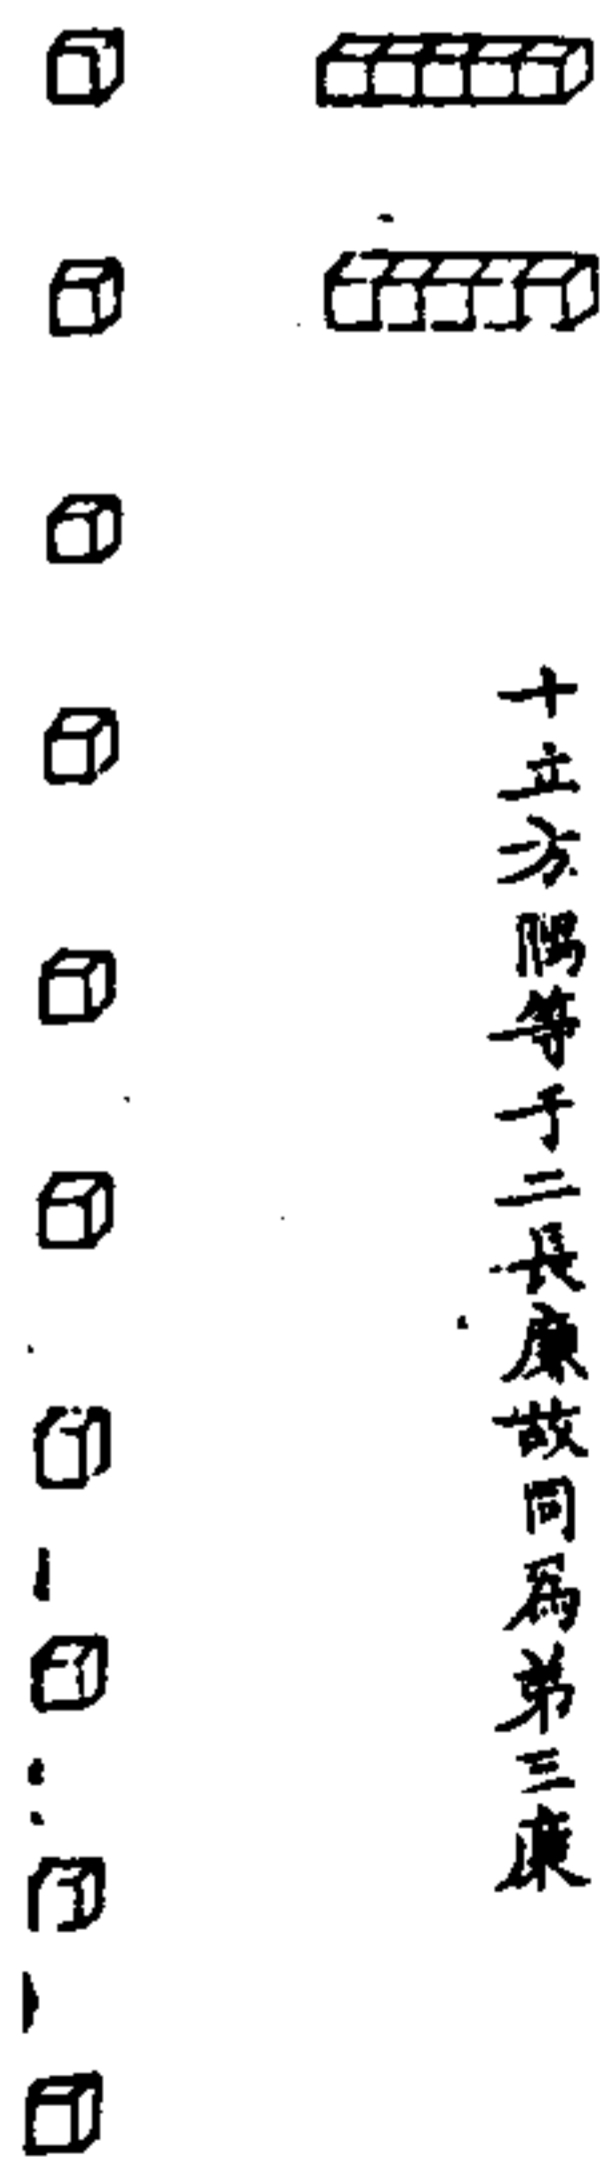 十立方隅等于三長廉故同爲第三廉